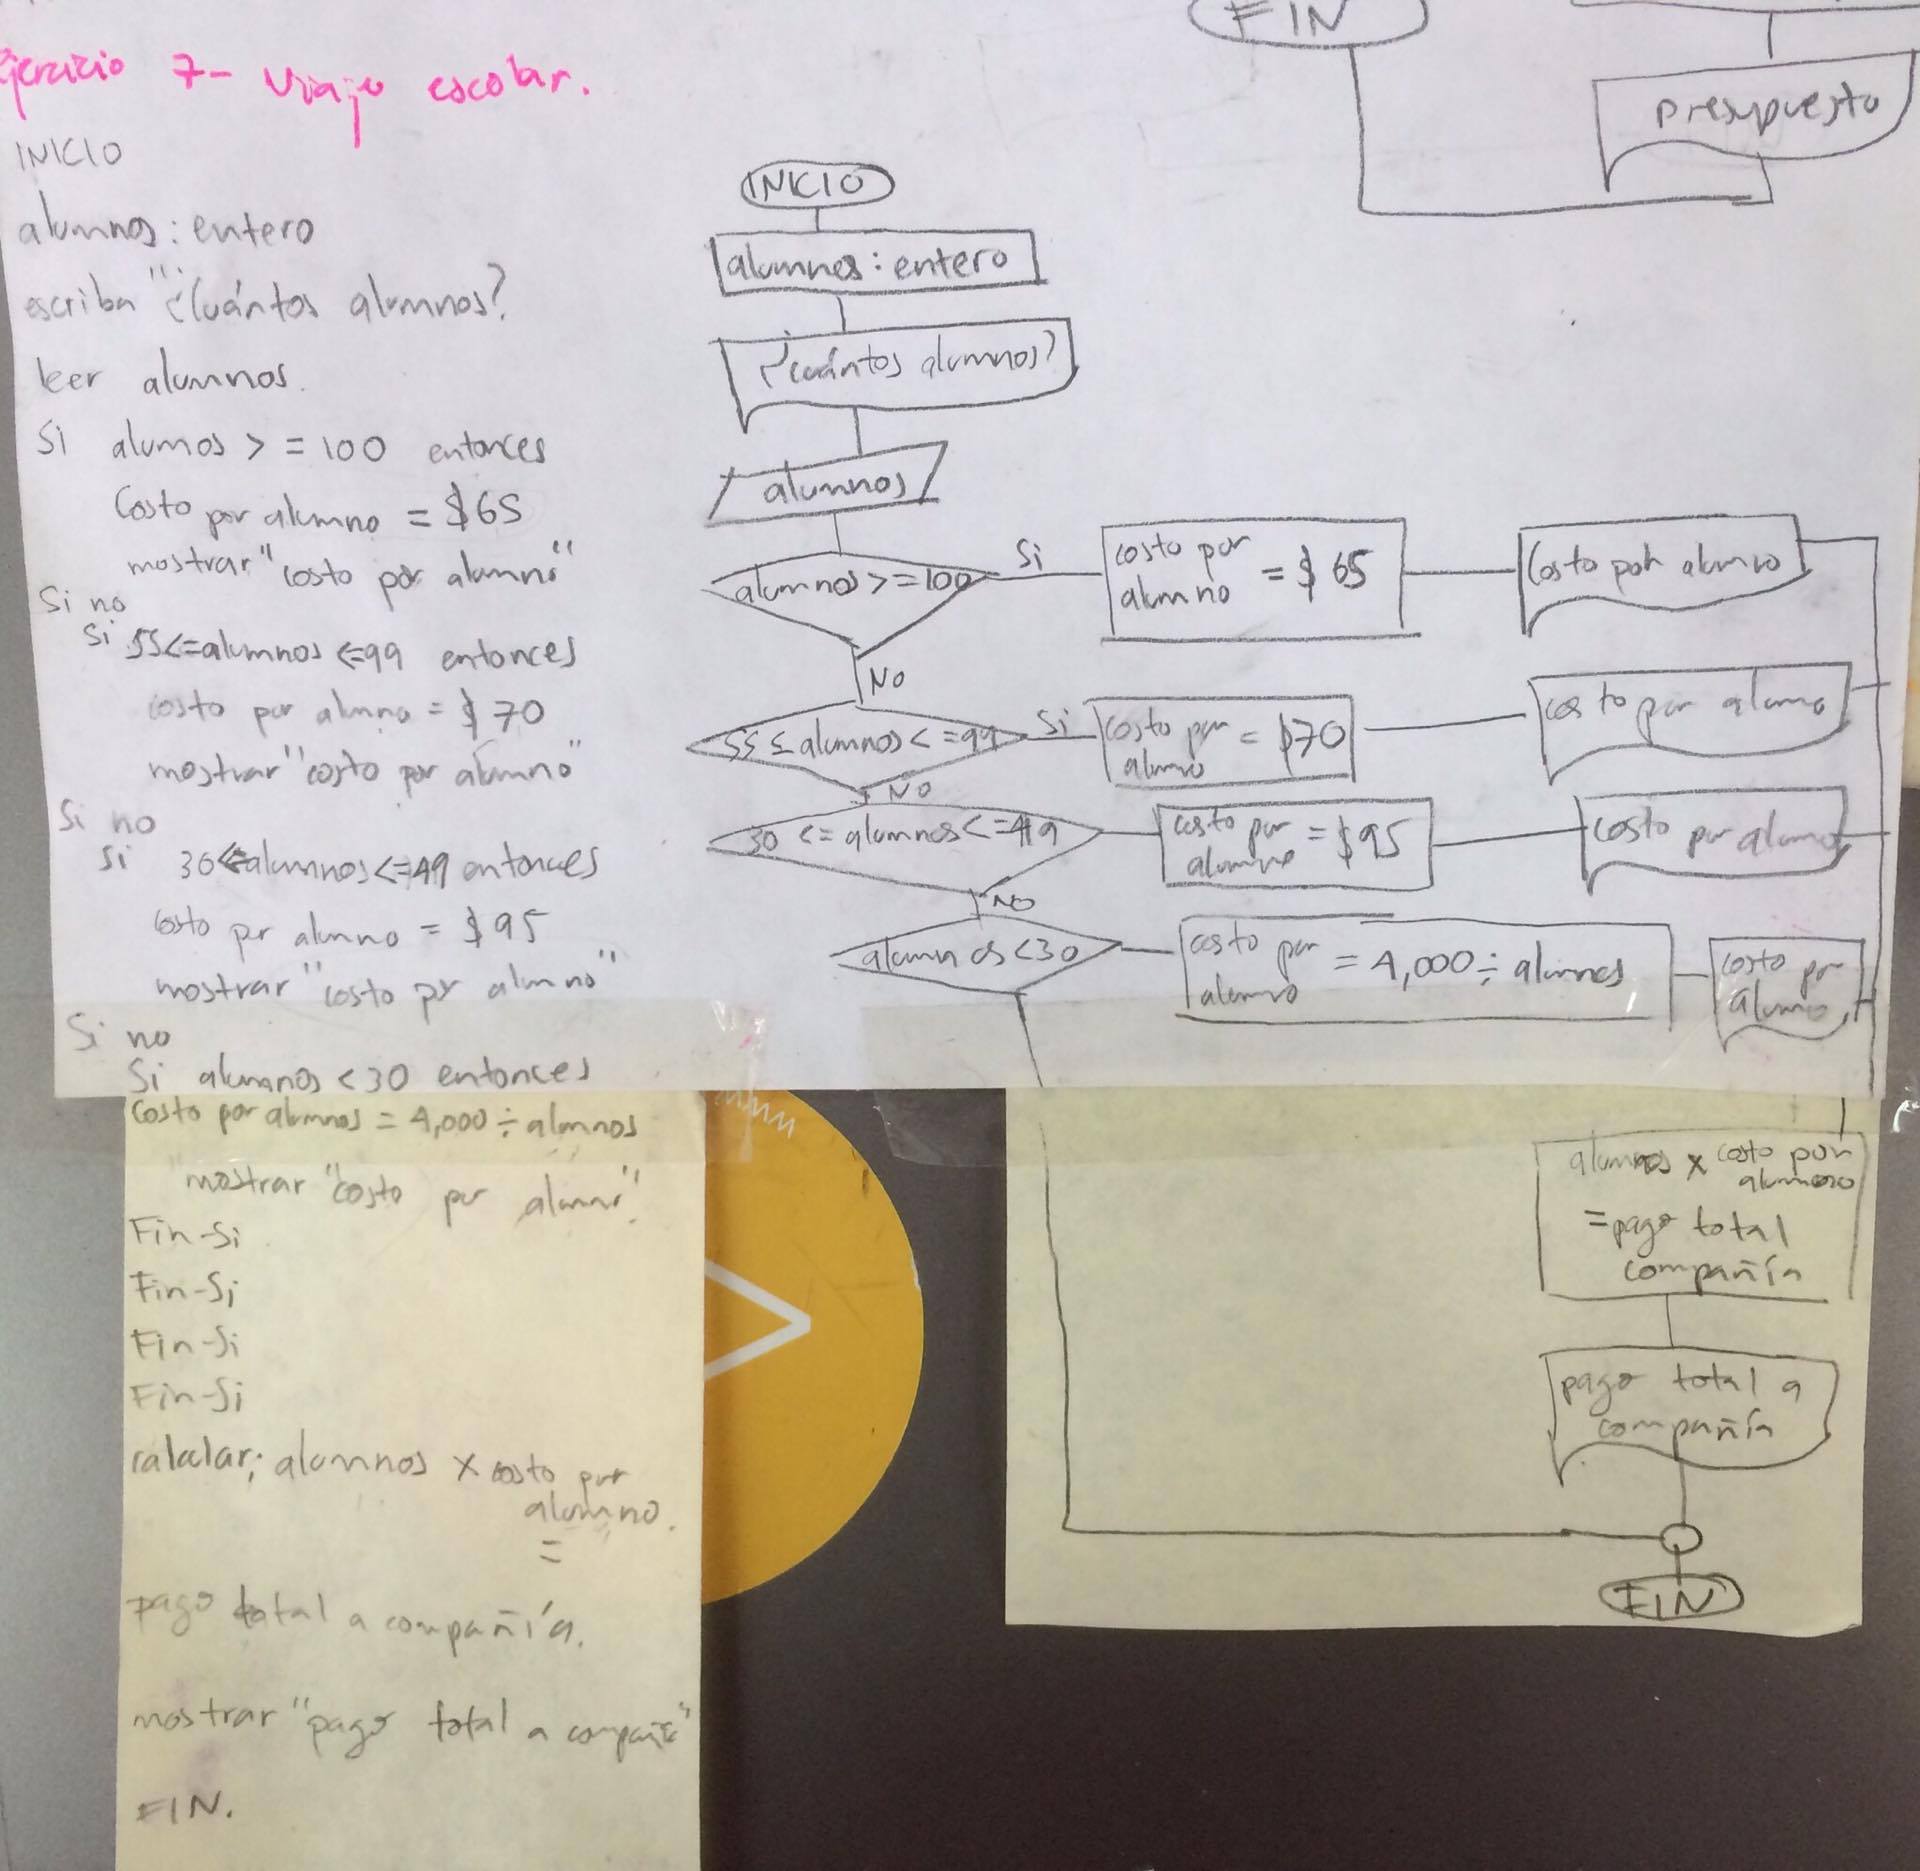 Ejercicio 7- Viaje escolar.
INICIO
alumnos: entero
escriba "¿Cuántos alumnos?
leer alumnos.
Si alumos >= 100 entonces
Costo por alumno = $65
mostrar "costo por alumno"
Si no
Si 55<=alumnos <=99 entonces
costo por alumno = $70
mostrar "costo por alumno"
Si no
Si 30<=alumnos<=49 entonces
costo por alumno = $95
mostrar "costo por alumno"
Si no
Si alumnos <30 entonces
Costo por alumnos = 4,000 ÷ alumnos
mostrar "costo por alumno".
Fin-Si
Fin-Si
Fin-Si
Fin-Si
calcular; alumnos x costo por
alumno.
=
pago total a compañía.
mostrar "pago total a compañía"
FIN.
FIN
presupuesto
INICIO
alumnos: entero
¿cuántos alumnos?
alumnos
alumnos >=100
Si
costo por
alumno = $ 65
Costo por alumno
No
55 ≤ alumnos <=99
Si
costo por
alumno = $70
costo por alumno
No
30 <= alumnos <=49
costo por
alumno = $95
costo por alumno
No
alumnos <30
costo por
alumno = 4,000 ÷ alumnos
costo por
alumno
alumnos x costo por
alumno
= pago total
compañía
pago total a
compañía
FIN